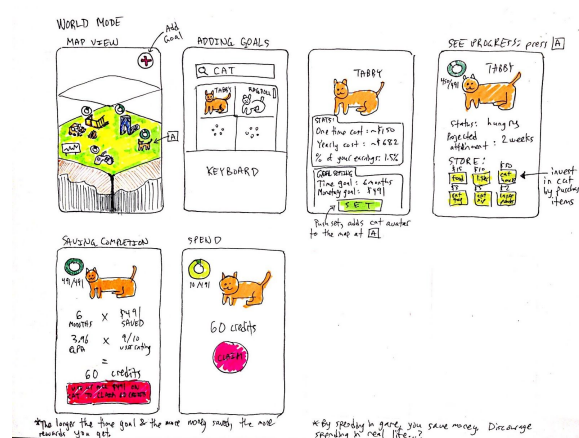 WORLD MODE
MAP VIEW
Add Goal
A
ADDING GOALS
CAT
TABBY
RAGDOLL
KEYBOARD
TABBY
STATS:
One time cost: ~$150
Yearly cost: ~$682
% of your earnings: 1.5%
GOAL SETTING
Time goal: 6 months
Monetary goal: $491
SET
Push set, adds cat avatar
to the map at A
SEE PROGRESS: press A
TABBY
Status: hungry
Projected
attainment: 2 weeks
STORE:
$15 $10 $50
food
cat
$5 $2
cat
invest
in cat
by purchasing
items
SAVING COMPLETION
491/491
6 x $491
MONTHS SAVED
3.96 x 9/10
user rating
=
60 credits
SPEND
10/491
60 credits
CLAIM
*The longer the time goal & the more money saved, the more
rewards you get.
*By spending in game, you save money. Discourage
spending in real life...?